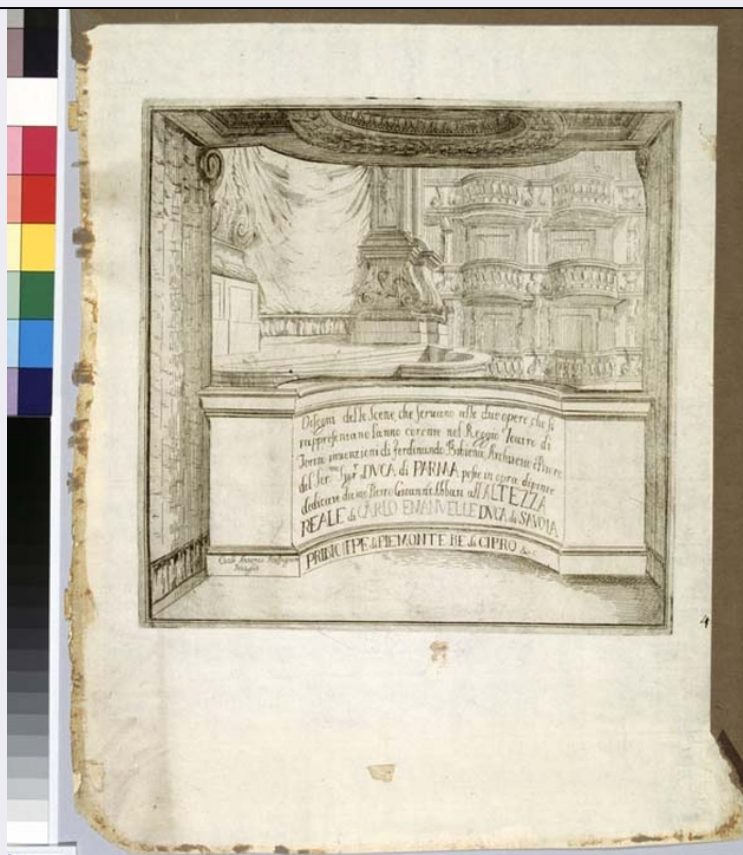 Disegni delle Scene che serviono alle due opere che si
rappresentano lanno corente nel Reggio Teatro di
Torino inuenzioni di ferdinando Bibiena Architetto è Pitore
del Ser.mo Sig.r DVCA di PARMA poste in opra dipinte
dedicate da me Pietro Giovanni Abbati all ALTEZZA
REALE di CARLO EMANVELLE DVCA di SAVOIA
PRINCIPE di PIEMONTE RE di CIPRO &c
Carlo Antonio
4